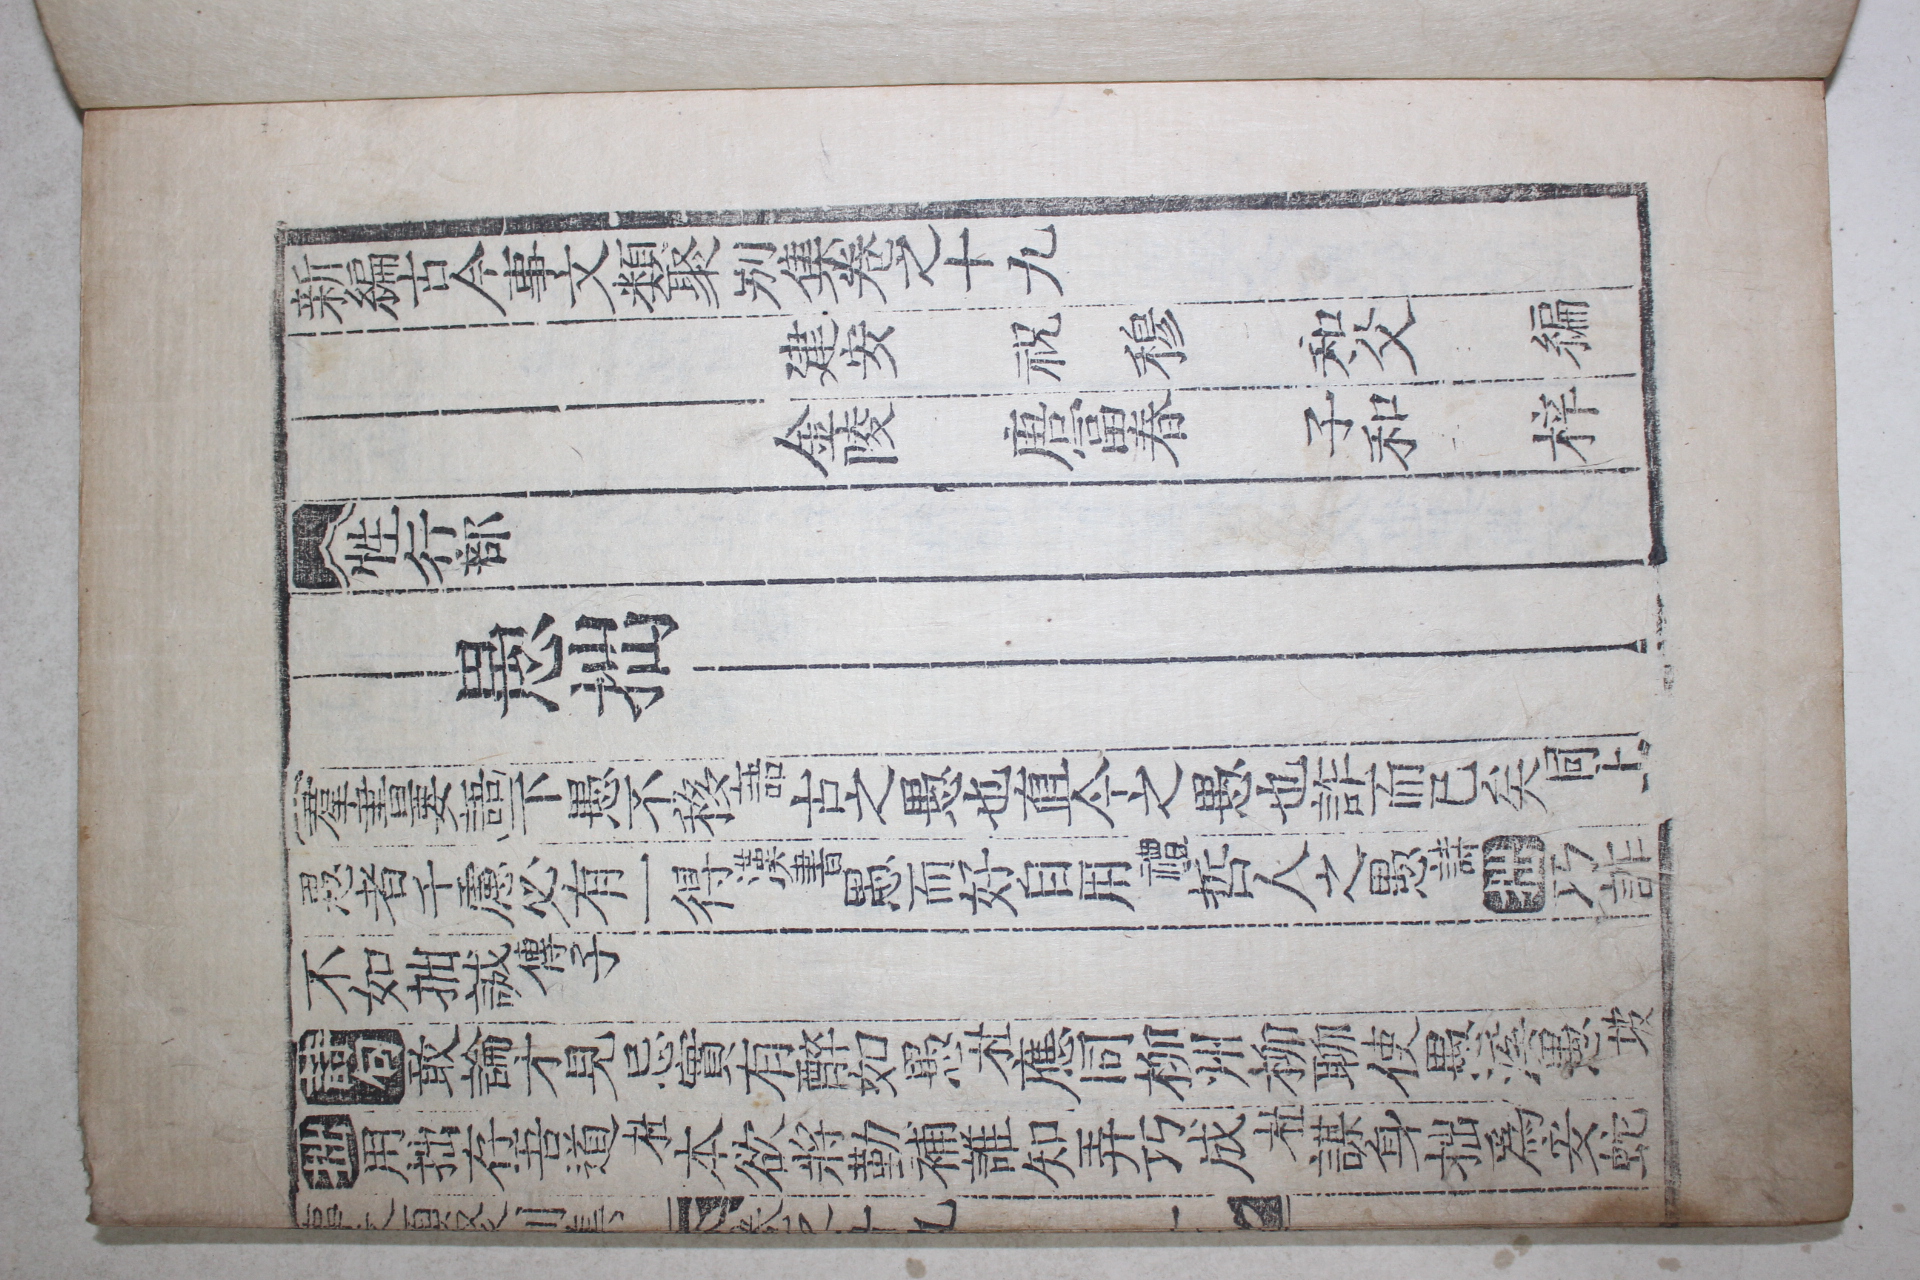 新編古今事文類聚別集卷之十九
建安 祝 穆 和父 編
金陵 唐富春 子和 梓
性行部
愚拙
羣書要語下愚不移語古之愚也直今之愚也詐而已矣同上
愚者千慮必有一得漢書愚而好自用禮哲人之愚詩拙巧詐
不如拙誠傳子
詩句敢論才見忌實有醉如愚杜應同柳州柳聊使愚溪愚坡
拙用拙存吾道杜本欲將勤補誰知弄巧成杜謀身拙爲安蛇
事文類聚別集 卷之十九 一